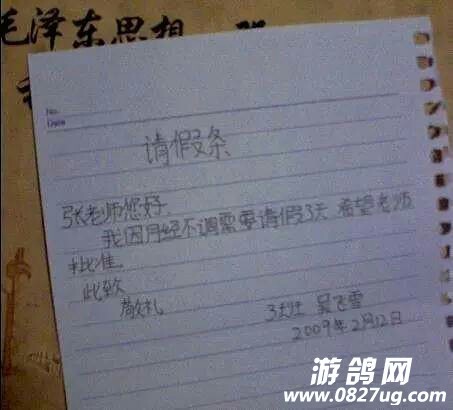 毛泽东思想
No.
Date
请假条
张老师您好.
我因月经不调需要请假3天 希望老师
批准.
此致
敬礼
吴飞雪
2009年2月12日
游鸽网
www.0827ug.com